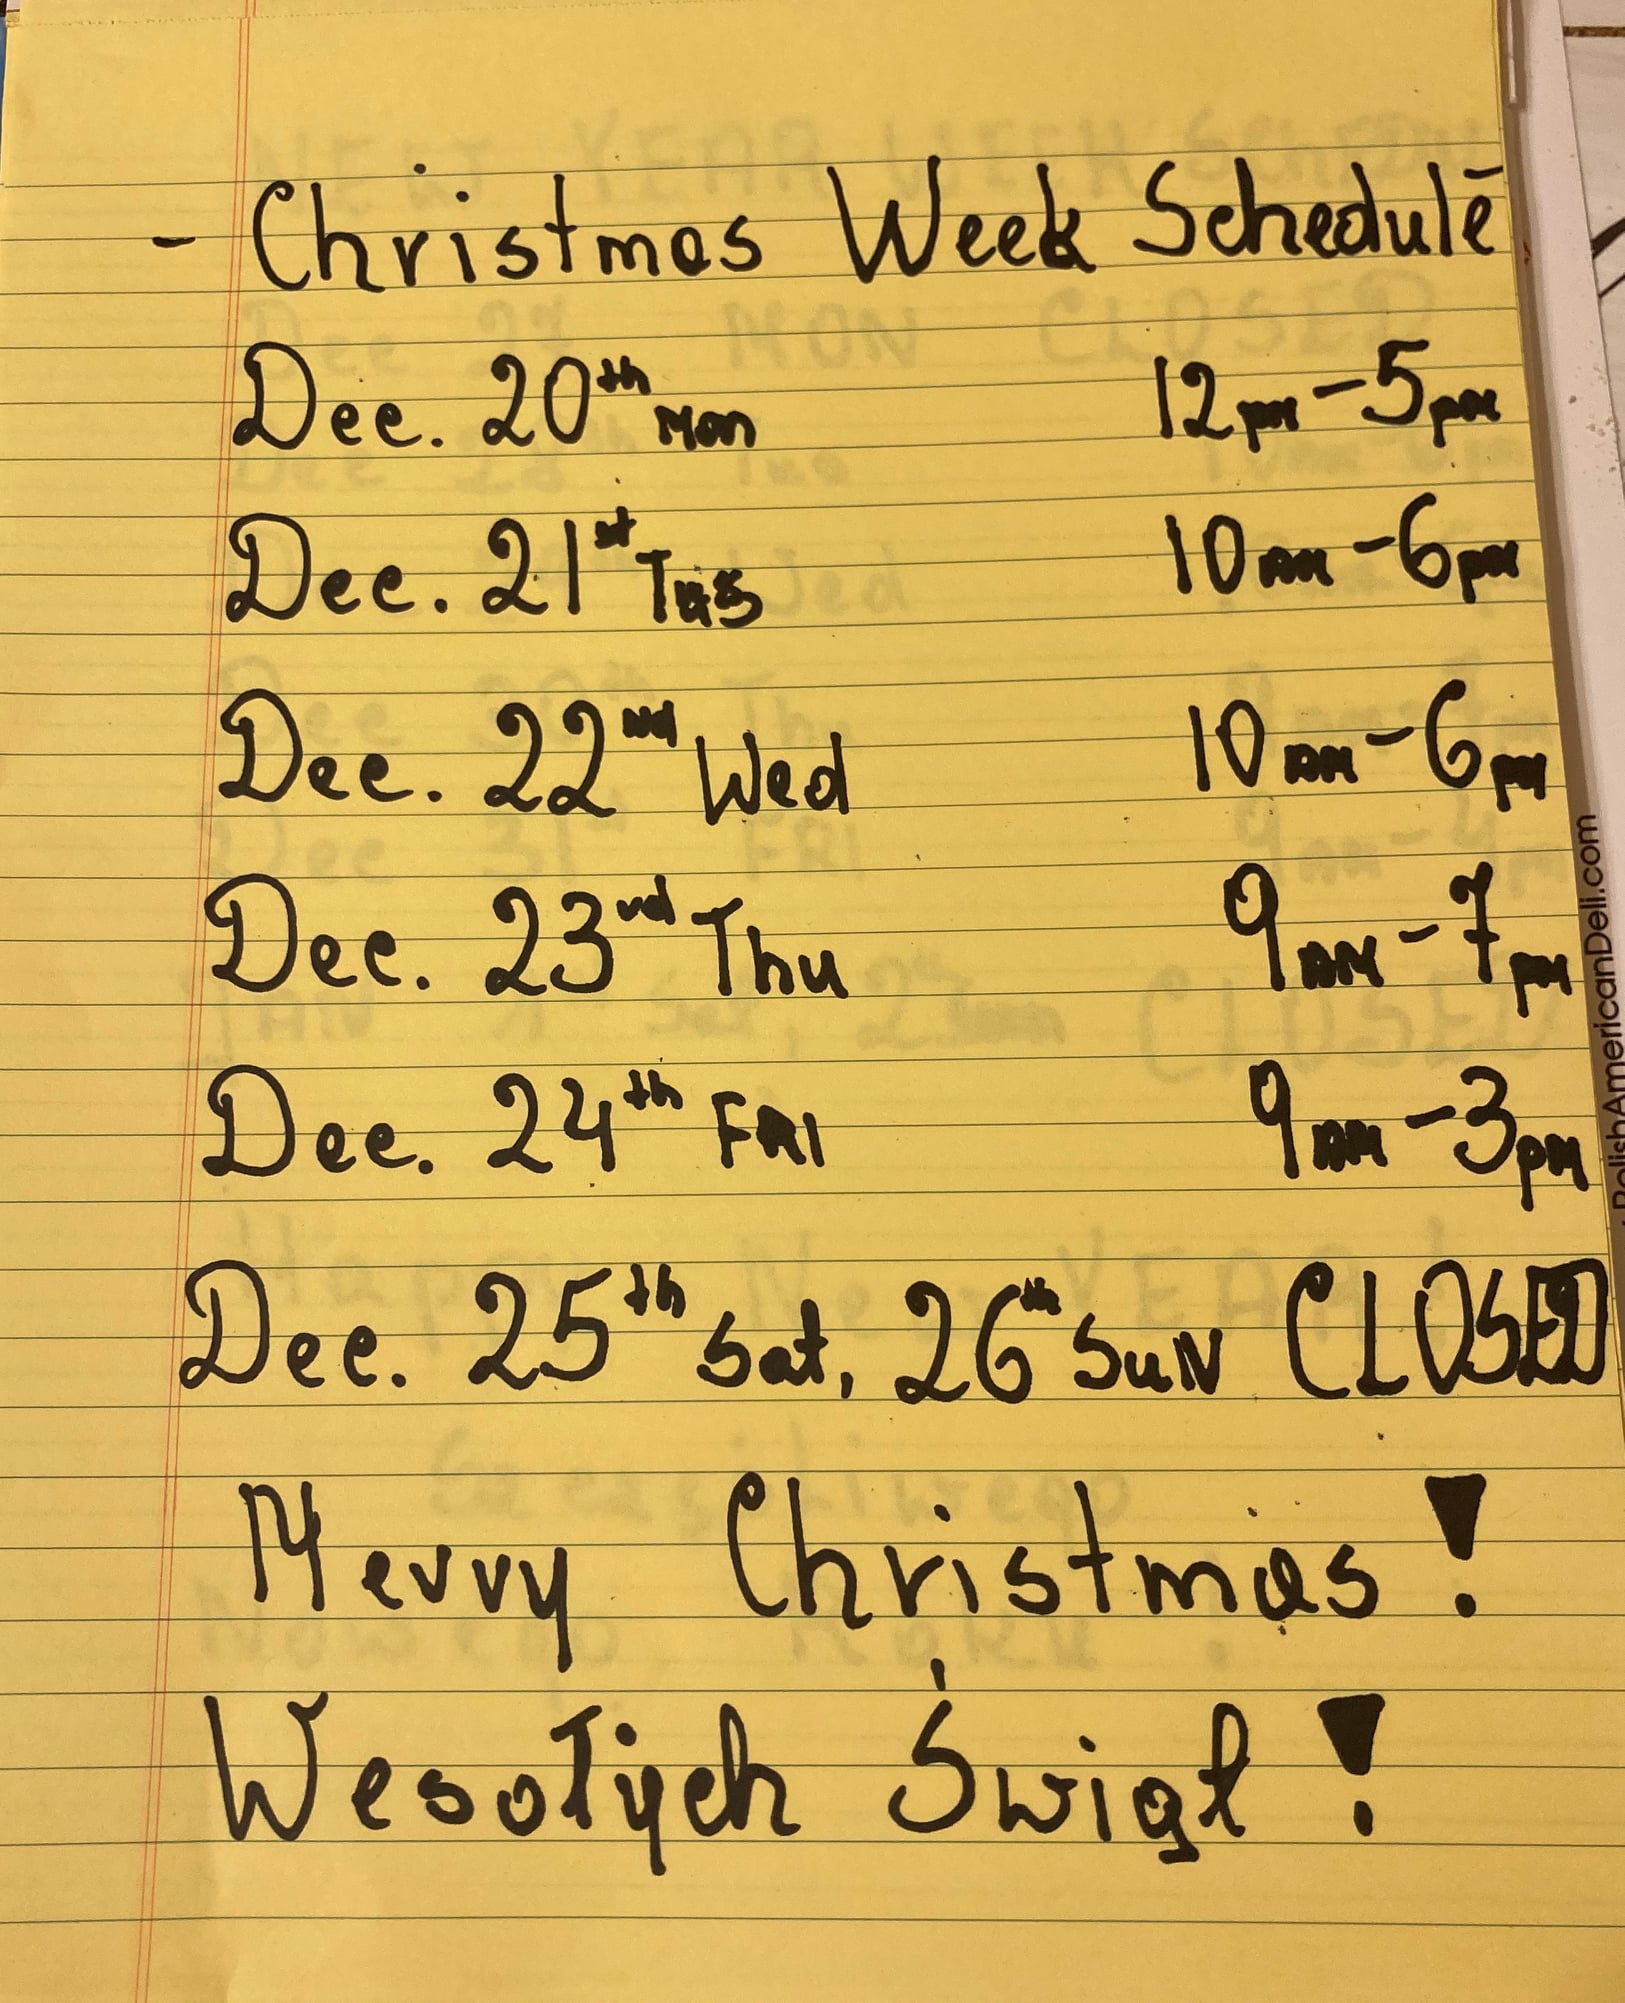 - Christmas Week Schedule -
Dec. 20th Mon 12pm - 5pm
Dec. 21st Tus 10am - 6pm
Dec. 22nd Wed 10am - 6pm
Dec. 23rd Thu 9am - 7pm
Dec. 24th FRI 9am - 3pm
Dec. 25th Sat, 26th SuN CLOSED
Merry Christmas!
Wesołych Świąt!
PolishAmericanDeli.com